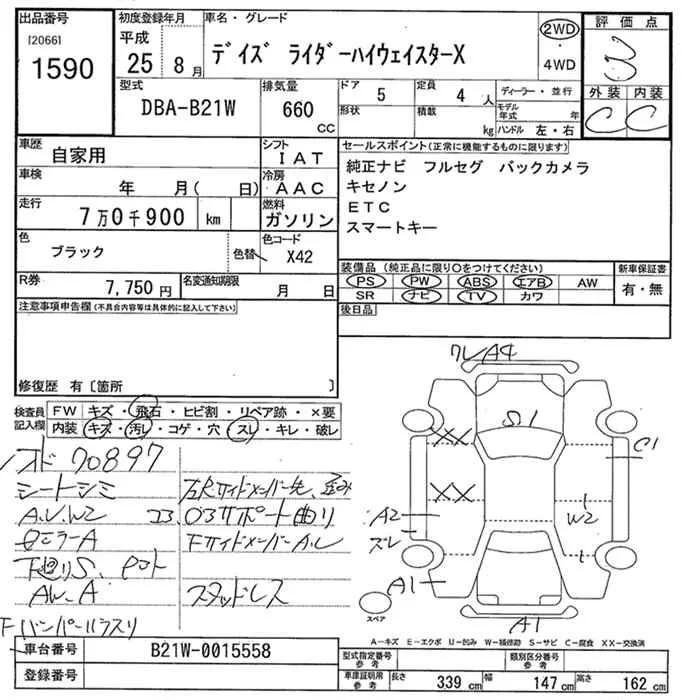 出品番号
[2066]
1590
初度登録年月
平成
25 8月
車名・グレード
デイズ ライダーハイウェイスターX
2WD
・
4WD
評価点
3
外装 内装
C C
型式
DBA-B21W
排気量
660
CC
ドア
5
形状
定員
4 人
積載
kg
ディーラー・並行
モデル年式 年
ハンドル 左・右
車歴
自家用
シフト
IAT
車検
年 月( 日)
冷房
AAC
走行
7万0千900 km
燃料
ガソリン
色
ブラック
色替
色コード
X42
R券
7,750円
名変通知期限
月 日
セールスポイント(正常に機能するものに限ります)
純正ナビ フルセグ バックカメラ
キセノン
ETC
スマートキー
装備品(純正品に限り○をつけてください)
PS PW ABS エアB AW
SR ナビ TV カワ
新車保証書
有・無
後日品
注意事項申告欄(不具合内容等は具体的に記入して下さい)
修復歴 有〔箇所 〕
検査員記入欄
FW キズ・飛石・ヒビ割・リペア跡・×要
内装 キズ・汚レ・コゲ・穴・スレ・キレ・破レ
70897
シートシミ
A.U.W2
コミ.ロアサポート曲り
ウロミラーA
FサイドメンバーA.し
下廻りS、
AW-A
スタッドレス
Fバンパーハラスリ
ワレA4
S1
XX
XX
C1
A2
ズレ
W2
A1
A1
スペア
A-キズ E-エクボ U-凹み W-補修跡 S-サビ C-腐食 XX-交換済
車台番号
B21W-0015558
登録番号
型式指定番号
参考
類別区分番号
参考
車庫証明用
参考
長さ 339 cm 幅 147 cm 高さ 162 cm